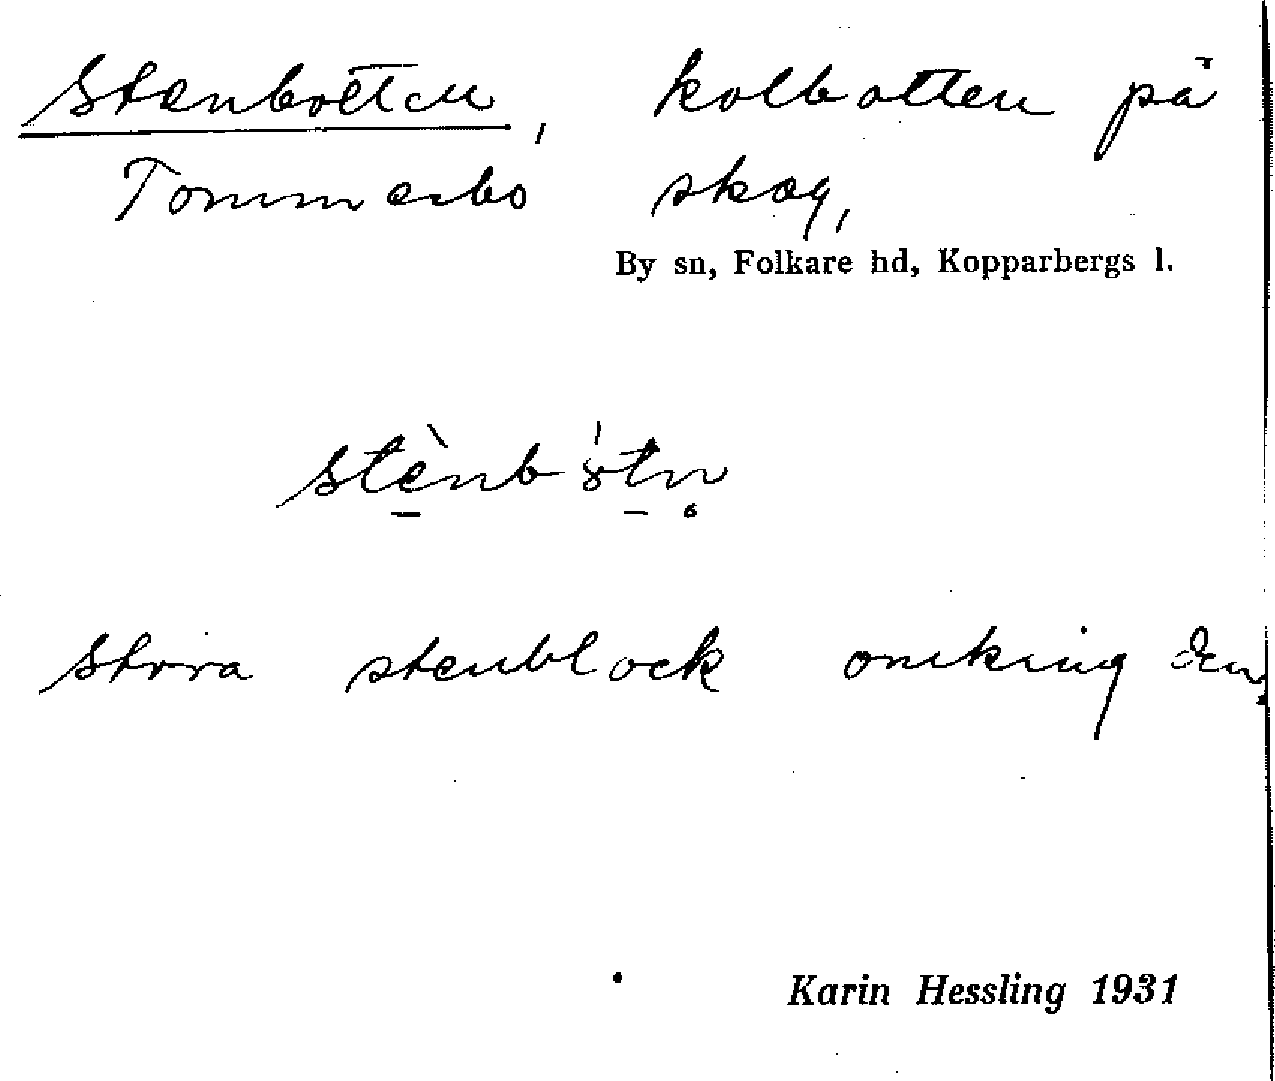 Stenbotten, kolbotten på
Tommerbo skog,
By sn, Folkare hd, Kopparbergs l.
Stora stenblock omkring den.
Karin Hessling 1931